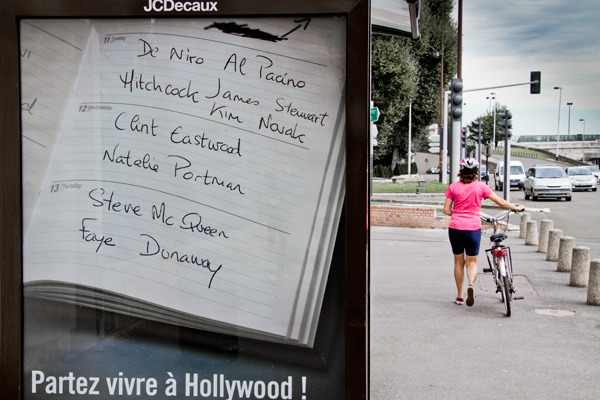 JCDecaux
11 Tuesday
De Niro Al Pacino
Hitchcock James Stewart
Kim Novak
12 Wednesday
Clint Eastwood
Natalie Portman
13 Thursday
Steve McQueen
Faye Dunaway
Partez vivre à Hollywood !